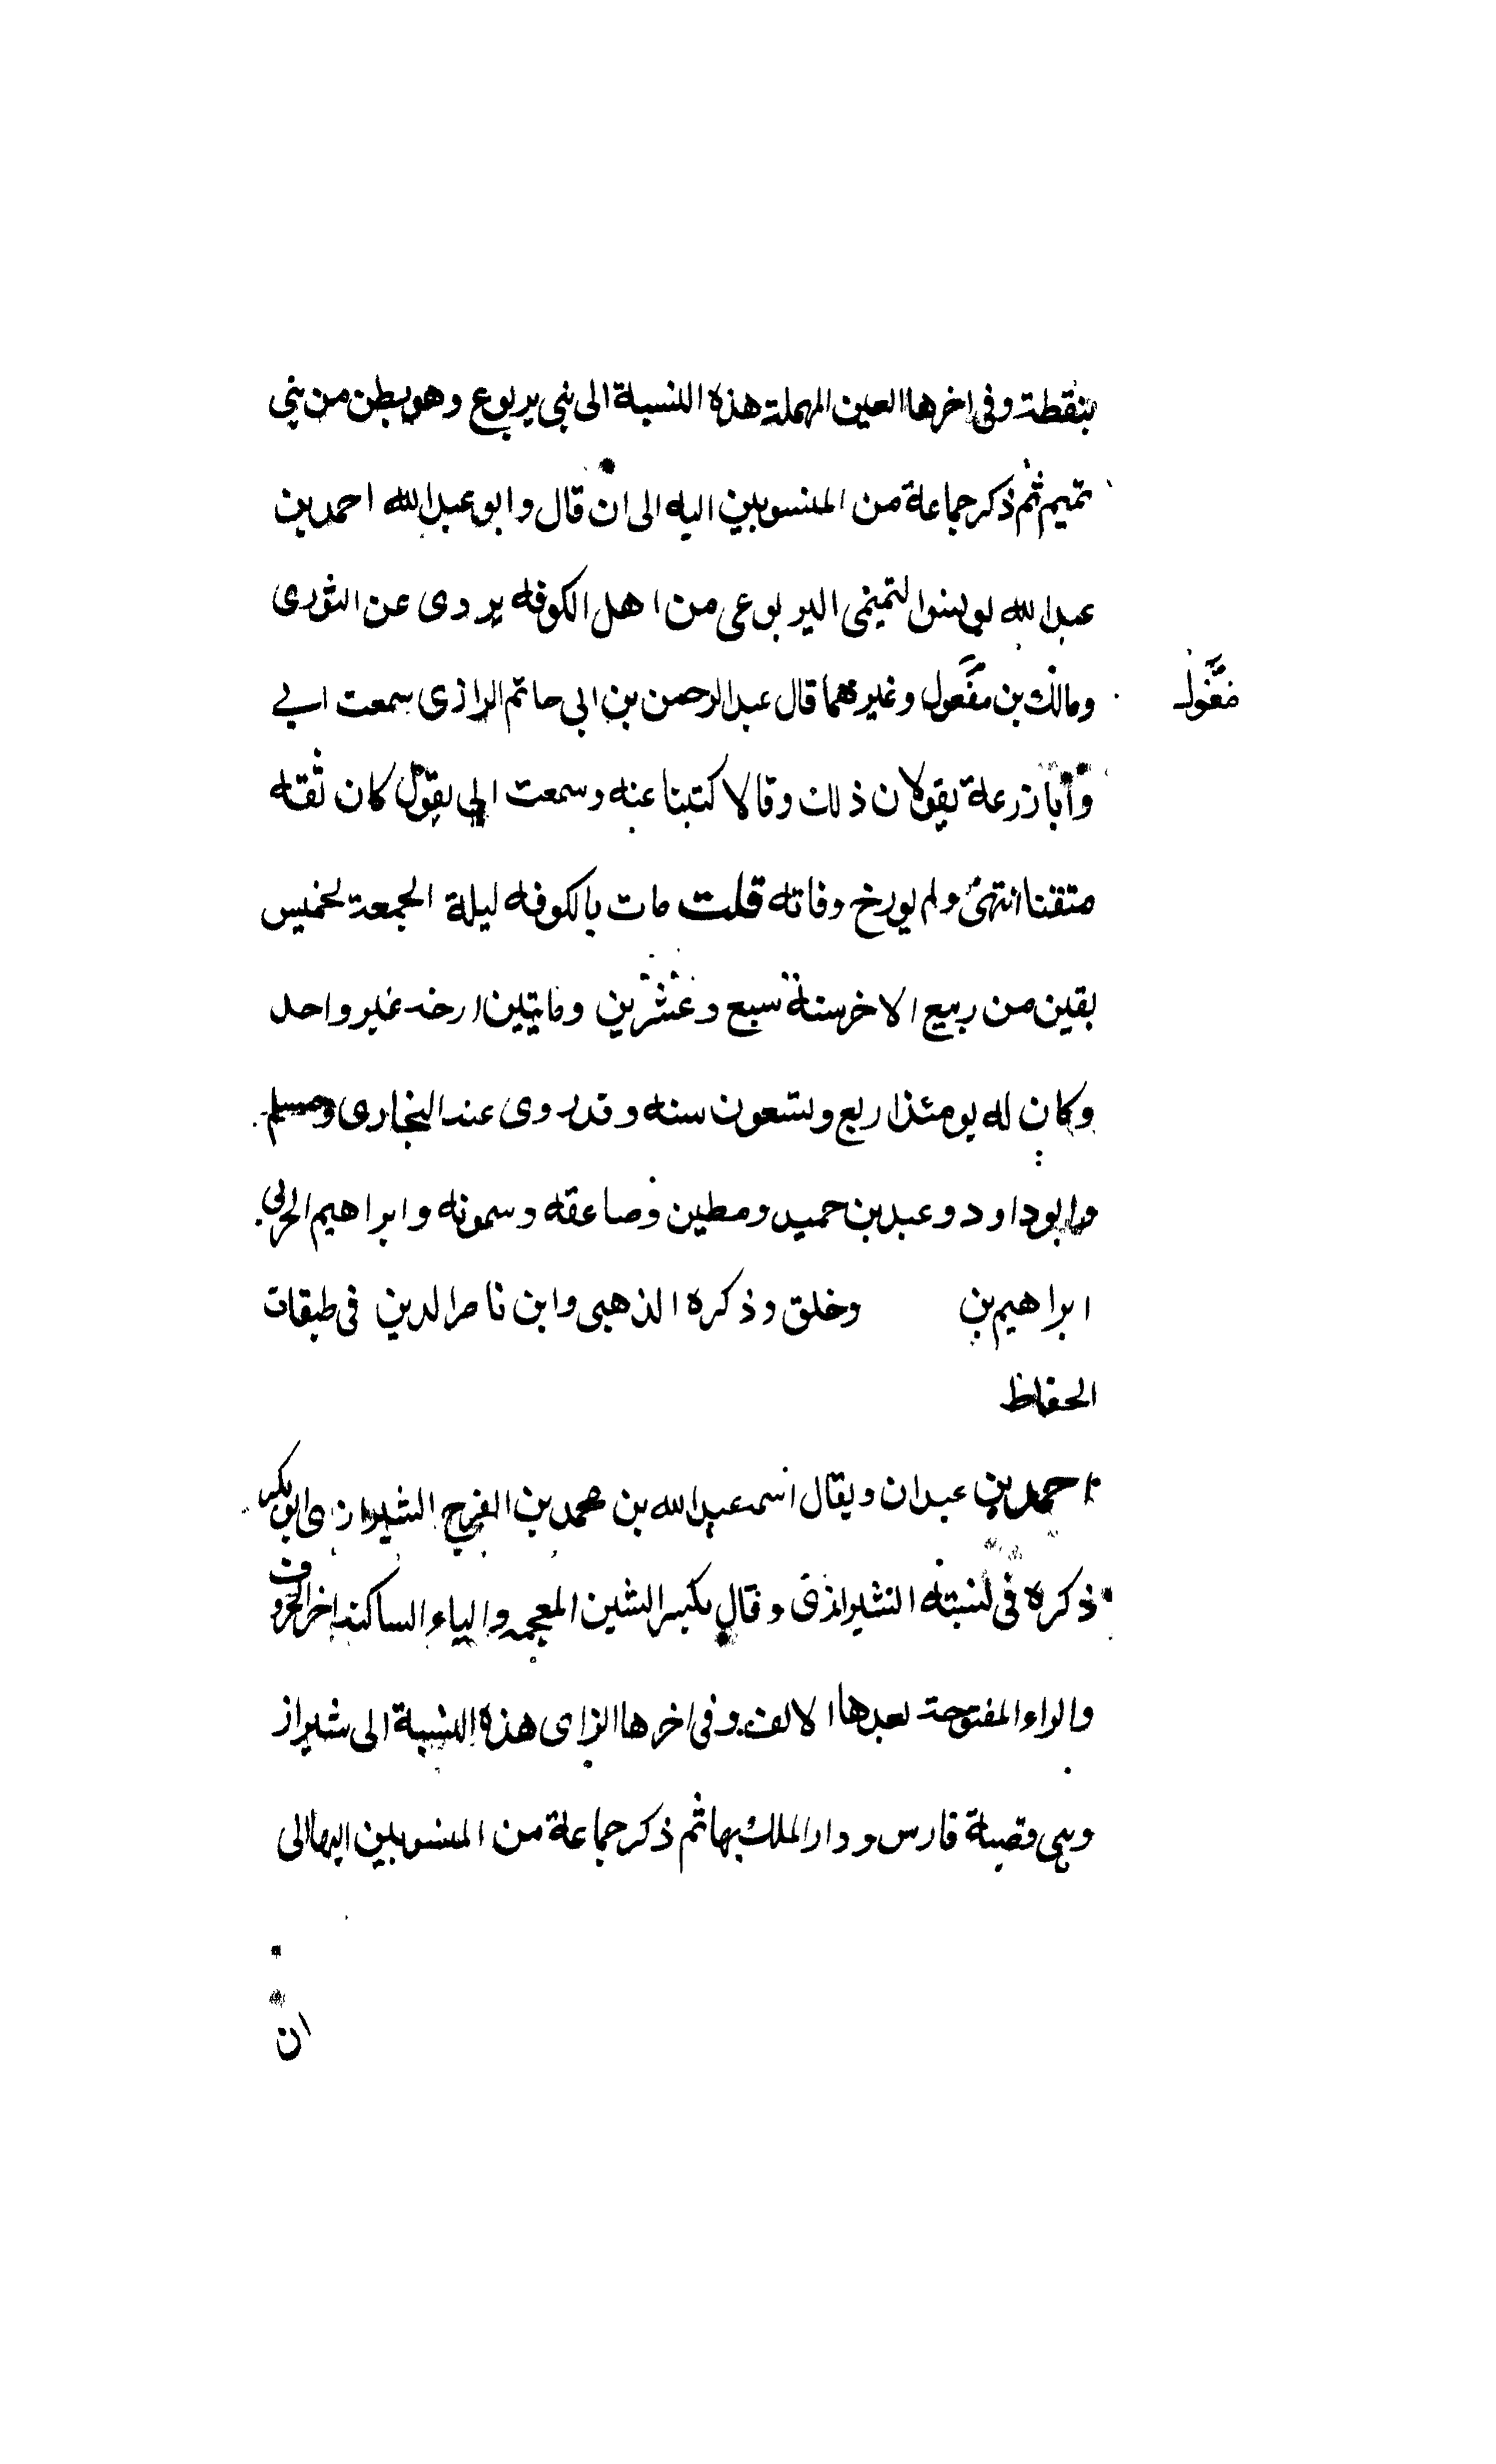 بنقطة وفى اخرها العين المهملة هذه النسبة الى بنى يربوع وهو بطن من بني
تميم ثم ذكر جماعة من المنسوبين اليه الى ان قال وابو عبد الله احمد بن
عبد الله بن يونس التميمى اليربوعى من اهل الكوفه يروى عن الثورى
ومالك بن مغول وغيرهما قال عبد الرحمن بن ابى حاتم الرازى سمعت ابي
مغول
وابا زرعة يقولان ذلك وقالا كتبنا عنه وسمعت ابي يقول كان ثقه
متقنا انتهى ولم يورخ وفاته قلت مات بالكوفه ليلة الجمعة لخمس
بقين من ربيع الاخر سنة سبع وعشرين ومايتين ارخه غير واحد
وكان له يومئذ اربع وتسعون سنه وقد روى عنه البخارى ومسلم
وابو داود وعبد بن حميد ومطين وصاعقه وسمونه وابراهيم الحربي
ابراهيم بن وخلق وذكره الذهبى وابن ناصر الدين فى طبقات
الحفاظ
احمد بن عبدان ويقال اسمه عبد الله بن محمد بن الفرج الشيرازى ابو بكر
ذكره فى نسبته الشيرازى وقال بكسر الشين المعجمه والياء الساكنه اخر الحروف
والراء المفتوحة بعدها الالف وفى اخرها الزاى هذه النسبة الى شيراز
وهى قصبة فارس ودار الملك بها ثم ذكر جماعة من المنسوبين اليها الى
ان